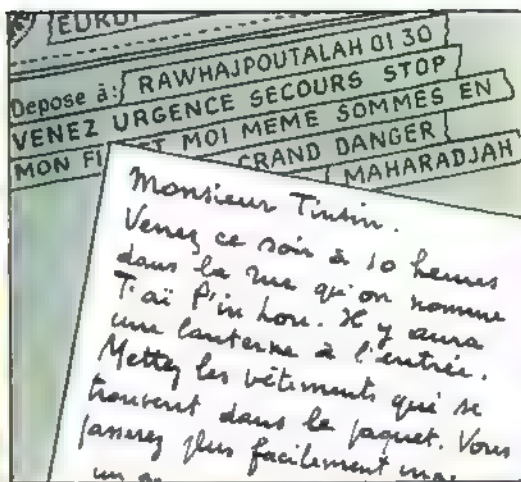 EUROP
Depose à: RAWHAJPOUTALAH 01 30
VENEZ URGENCE SECOURS STOP
MON FI ET MOI MEME SOMMES EN
GRAND DANGER
MAHARADJAH
Monsieur Tintin.
Venez ce soir à 10 heures
dans la rue qu'on nomme
T'aï P'in Lou. Il y aura
une lanterne à l'entrée.
Mettez les vêtements qui se
trouvent dans le paquet. Vous
passerez plus facilement
un